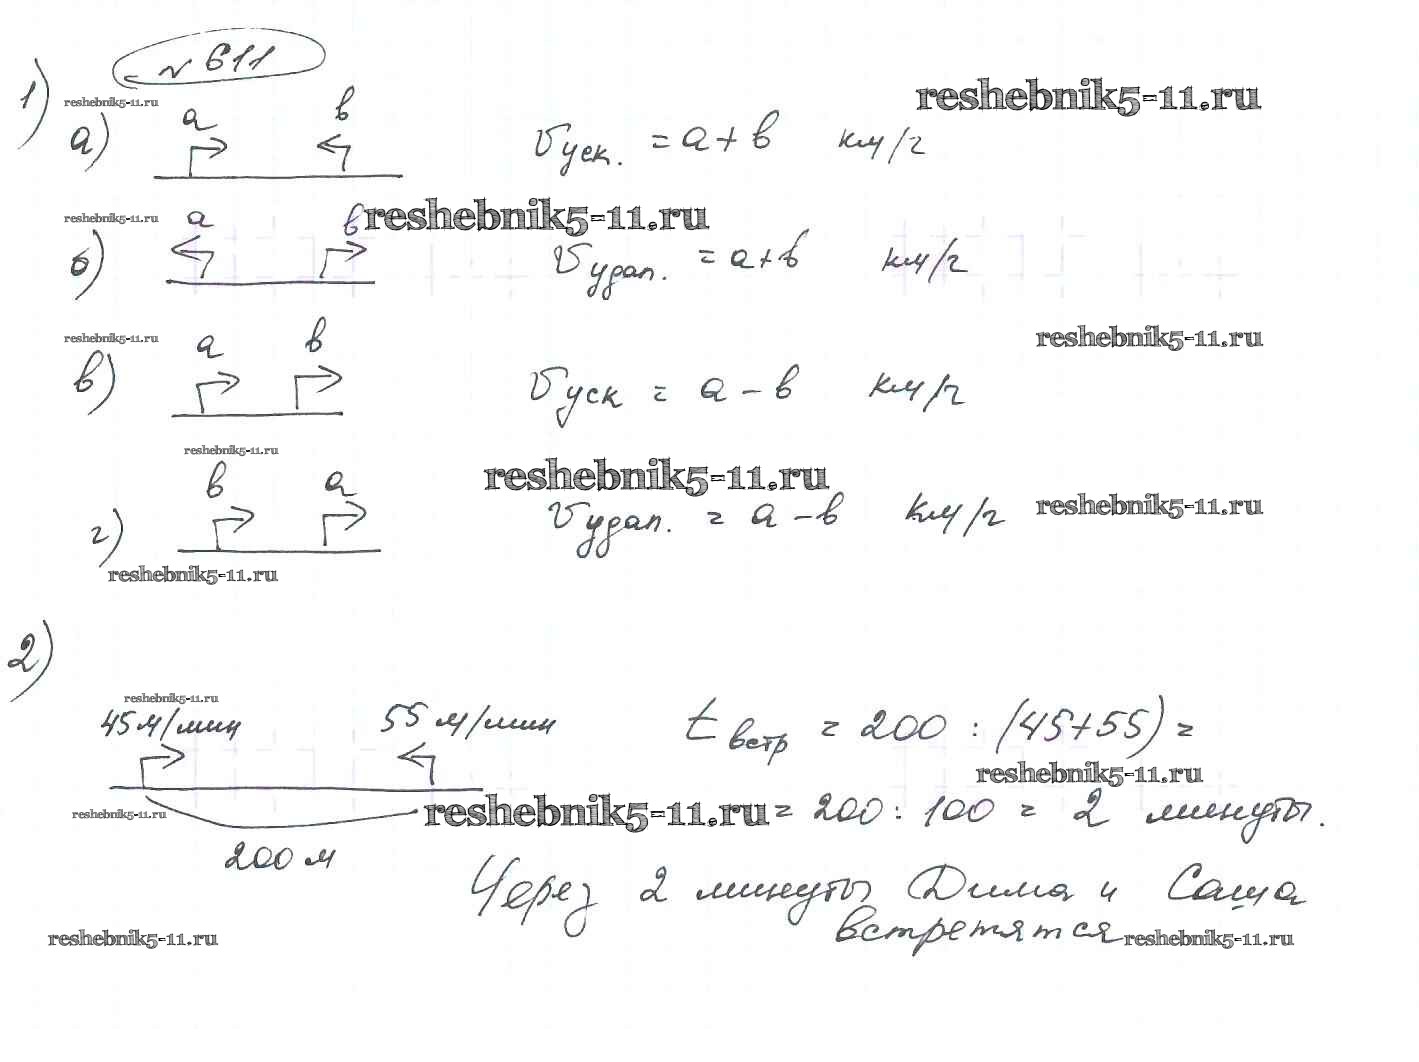 № 611
1)
reshebnik5-11.ru
reshebnik5-11.ru
а) a в Vуск. = a + в км/ч
reshebnik5-11.ru
reshebnik5-11.ru
б) a в Vудал. = a + в км/ч
reshebnik5-11.ru
reshebnik5-11.ru
в) a в Vуск = a – в км/ч
reshebnik5-11.ru
reshebnik5-11.ru
reshebnik5-11.ru
г) в a Vудал. = a – в км/ч
reshebnik5-11.ru
2)
reshebnik5-11.ru
45 м/мин 55 м/мин tвстр = 200 : (45+55) =
reshebnik5-11.ru
reshebnik5-11.ru
reshebnik5-11.ru
= 200 : 100 = 2 минуты.
200 м
Через 2 минуты Дима и Саша
встретятся
reshebnik5-11.ru
reshebnik5-11.ru